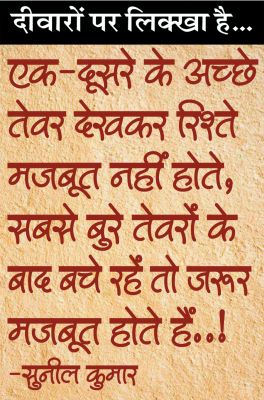 दीवारों पर लिक्खा है...
एक-दूसरे के अच्छे
तेवर देखकर रिश्ते
मजबूत नहीं होते,
सबसे बुरे तेवरों के
बाद बचे रहें तो जरूर
मजबूत होते हैं..!
-सुनील कुमार